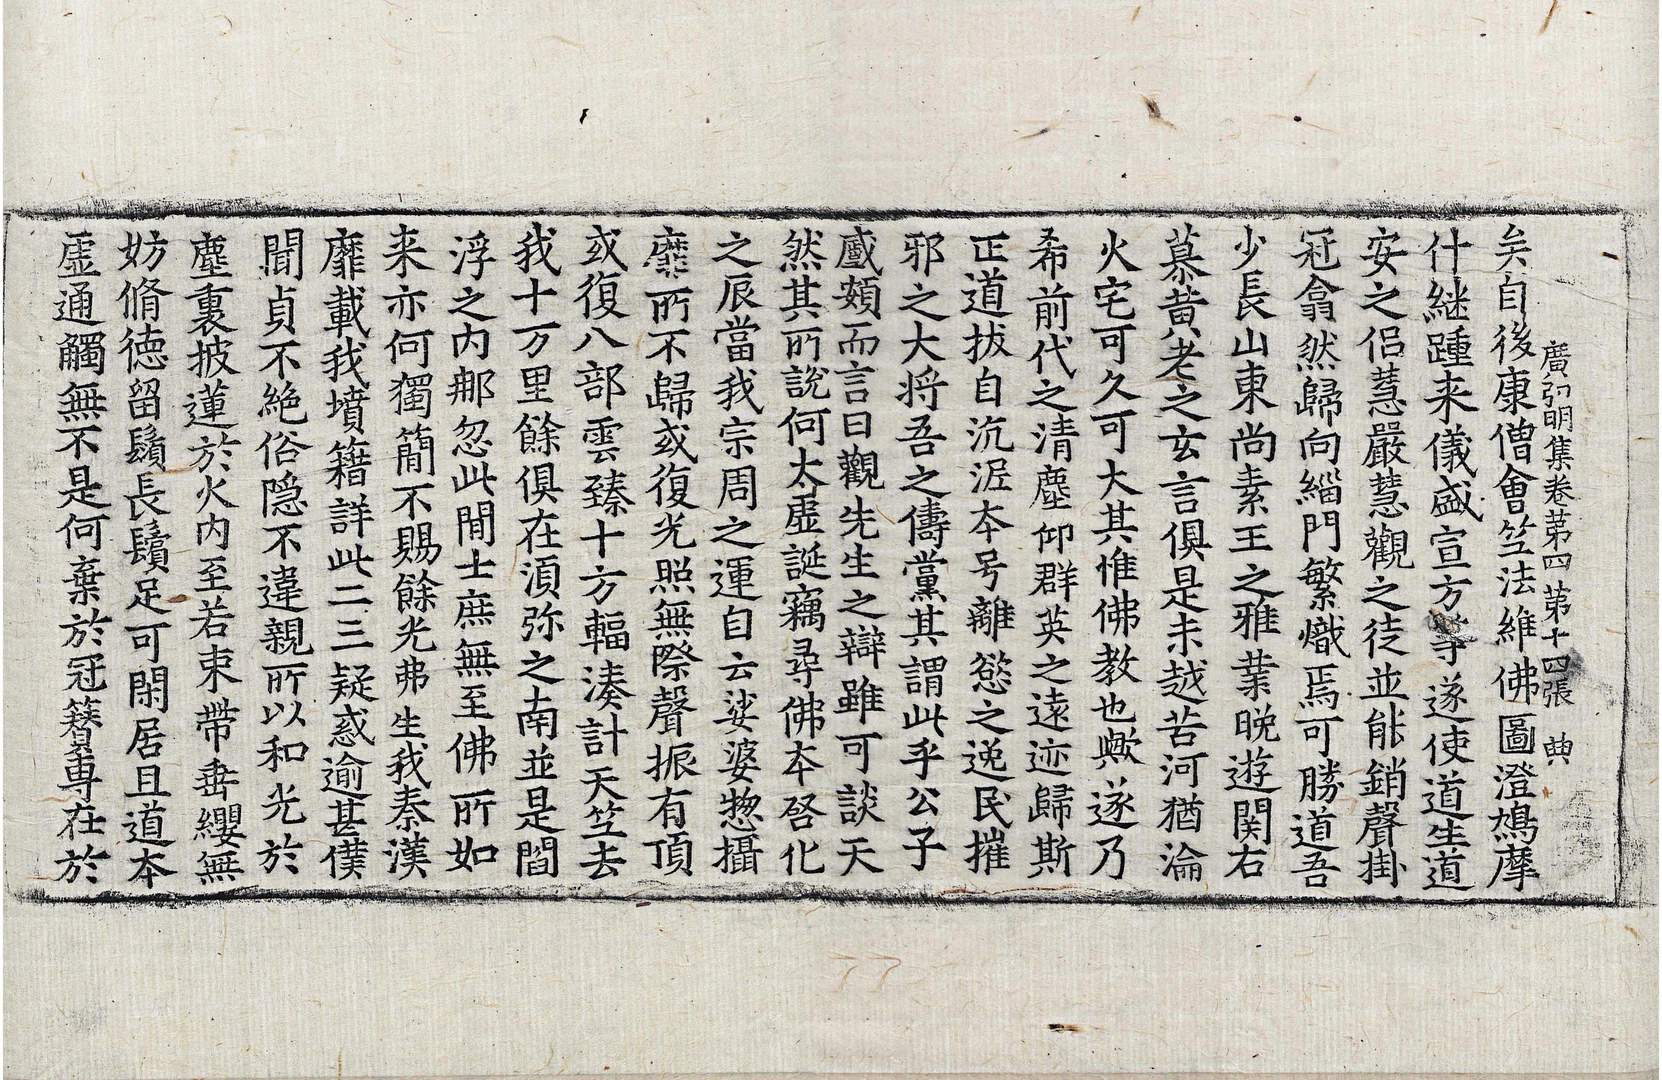 廣弘明集卷第四 第十四張 典
矣自後康僧會竺法維佛圖澄鳩摩
什継踵来儀盛宣方等遂使道生道
安之侣慧嚴慧觀之徒並能銷聲掛
冠翕然歸向緇門繁熾焉可勝道吾
少長山東尚素王之雅業晚遊関右
慕黄老之玄言俱是未越苦河猶淪
火宅可久可大其惟佛教也歟遂乃
希前代之清塵仰群英之遠迹歸斯
正道拔自沉泥本号離慾之逸民摧
邪之大将吾之儔黨其謂此乎公子
蹙頞而言曰觀先生之辯雖可談天
然其所說何太虛誕竊尋佛本啓化
之辰當我宗周之運自云娑婆惣攝
靡所不歸或復光照無際聲振有頂
或復八部雲臻十方輻湊計天竺去
我十万里餘俱在湏弥之南並是閻
浮之内郍忽此間士庶無至佛所如
来亦何獨簡不賜餘光弗生我秦漢
靡載我墳籍詳此二三疑惑逾甚僕
聞貞不絶俗隠不違親所以和光於
塵裏披蓮於火内至若束帶垂纓無
妨脩徳留鬚長鬢足可閑居且道本
虛通觸無不是何棄於冠簪專在於